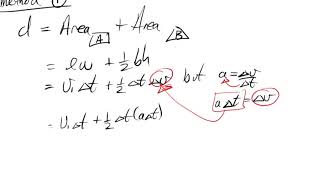 method ①
d = Area A + Area B
= lw + ½bh
= viΔt + ½ Δt Δv but a = Δv/Δt
aΔt = Δv
= viΔt + ½ Δt(aΔt)